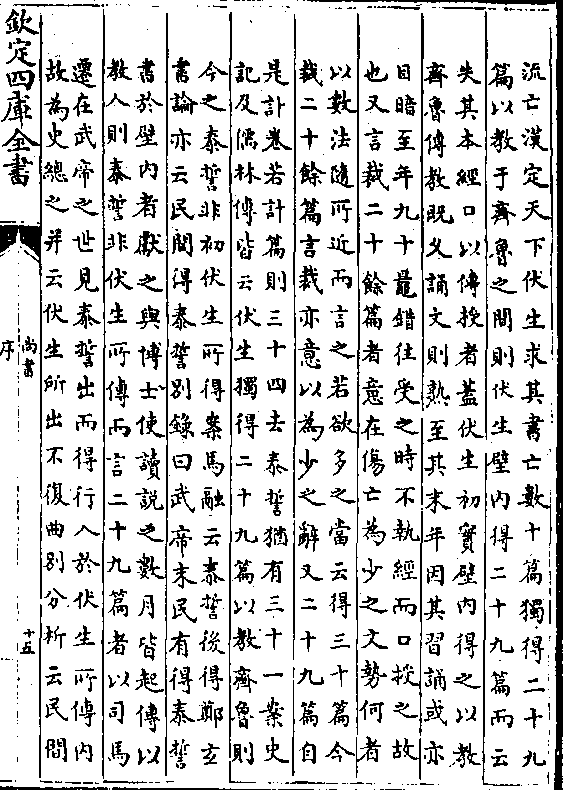 流亡漢定天下伏生求其書亡數十篇獨得二十九
篇以教于齊魯之間則伏生壁内得二十九篇而云
失其本經口以傳授者蓋伏生初實壁内得之以教
齊魯傳教既久誦文則熟至其末年因其習誦或亦
目暗至年九十鼂錯往受之時不執經而口授之故
也又言裁二十餘篇者意在傷亡為少之文勢何者
以數法隨所近而言之若欲多之當云得三十篇今
裁二十餘篇言裁亦意以為少之辭又二十九篇自
是計卷若計篇則三十四去泰誓猶有三十一案史
記及儒林傳皆云伏生獨得二十九篇以教齊魯則
今之泰誓非初伏生所得案馬融云泰誓後得鄭玄
書論亦云民間得泰誓别錄曰武帝末民有得泰誓
書於壁内者獻之與博士使讀說之數月皆起傳以
教人則泰誓非伏生所傳而言二十九篇者以司馬
遷在武帝之世見泰誓出而得行入於伏生所傳内
故為史總之并云伏生所出不復曲别分析云民間
欽定四庫全書
尚書
序
十五